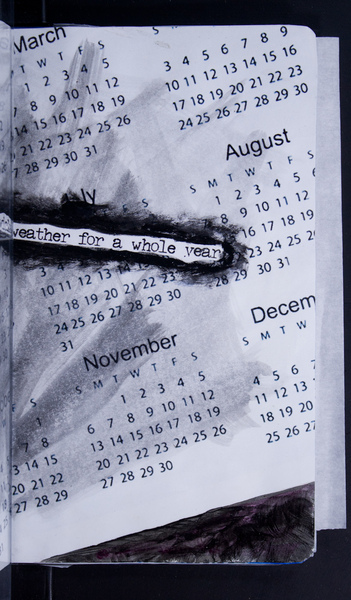 March
T W T F S
1 2 3 4 5
8 9 10 11 12
14 15 16 17 18 19
21 22 23 24 25 26
28 29 30 31
S
3 4 5 6 7 8 9
10 11 12 13 14 15 16
17 18 19 20 21 22 23
24 25 26 27 28 29 30
August
S M T W T F S
1 2 3 4 5 6
8 9 10 11 12
16 17 18 19 20
23 24 25 26
28 29 30 31
weather for a whole year
10 11 12 13 14 15 16
17 18 19 20 21 22 23
24 25 26 27 28 29 30
31
S
1
7 8
13 14 15
20 21 22
27 28 29
November
S M T W T F S
1 2 3 4 5
6 7 8 9 10 11 12
13 14 15 16 17 18 19
20 21 22 23 24 25 26
27 28 29 30
Decem
S M T W
4 5 6 7
11 12 13
18 19 20
25 26 27